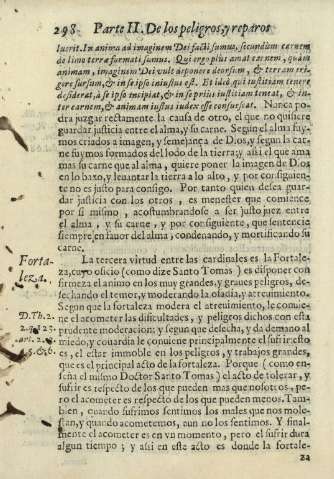 298 Parte II. De los peligros, y reparos
luerit. In anima ad imaginem Dei facti sumus, secundùm carnem
de limo terræ formati sumus. Qui ergo plus amat carnem, quàm
animam, imaginem Dei vult deponere deorsum, & terram eri-
gere sursum, & in se ipso iniustus est. Et ideò qui iustitiam tenere
desiderat, à se ipso incipiat, & in se prius iustitiam teneat, & in-
ter carnem, & animam iustus iudex esse consuescat. Nunca po-
dra juzgar rectamente la causa de otro, el que no quisiere
guardar justicia entre el alma, y su carne. Segun el alma fuy-
mos criados a imagen, y semejança de Dios, y segun la car-
ne fuymos formados del lodo de la tierra; y assi el que ama
mas su carne que al alma, quiere poner la imagen de Dios
en lo baxo, y leuantar la tierra a lo alto, y por consiguien-
te no es justo para consigo. Por tanto quien desea guar-
dar justicia con los otros, es menester que comience
por si mismo, acostumbrandose a ser justo juez entre
el alma, y su carne, y por consiguiente, que sentencie
siempre en fauor del alma, condenando, y mortificando su
carne.
Forta-
leza.
La tercera virtud entre las cardinales es la Fortale-
za, cuyo oficio (como dize Santo Tomas) es disponer con
firmeza el animo en los muy grandes, y graues peligros, de-
sechando el temor, y moderando la osadia, y atreuimiento.
D. Th. 2.
2. q. 123.
art. 2. 3.
5. & 6.
Segun que la fortaleza modera el atreuimiento, le conuie-
ne el acometer las dificultades, y peligros dichos con esta
prudente moderacion; y segun que desecha, y da de mano al
miedo, y couardia le conuiene principalmente el sufrir: esto
es, el estar immoble en los peligros, y trabajos grandes,
que es el principal acto de la fortaleza. Porque (como en-
seña el mismo Doctor Santo Tomas) el acto de tolerar, y
sufrir es respecto de los que pueden mas que nosotros, pe-
ro el acometer es respecto de los que pueden menos. Tam-
bien, quando sufrimos sentimos los males que nos moles-
tan, y quando acometemos, aun no los sentimos. Y final-
mente el acometer es en vn momento, pero el sufrir dura
algun tiempo; y assi en este acto es donde la fortale-
za